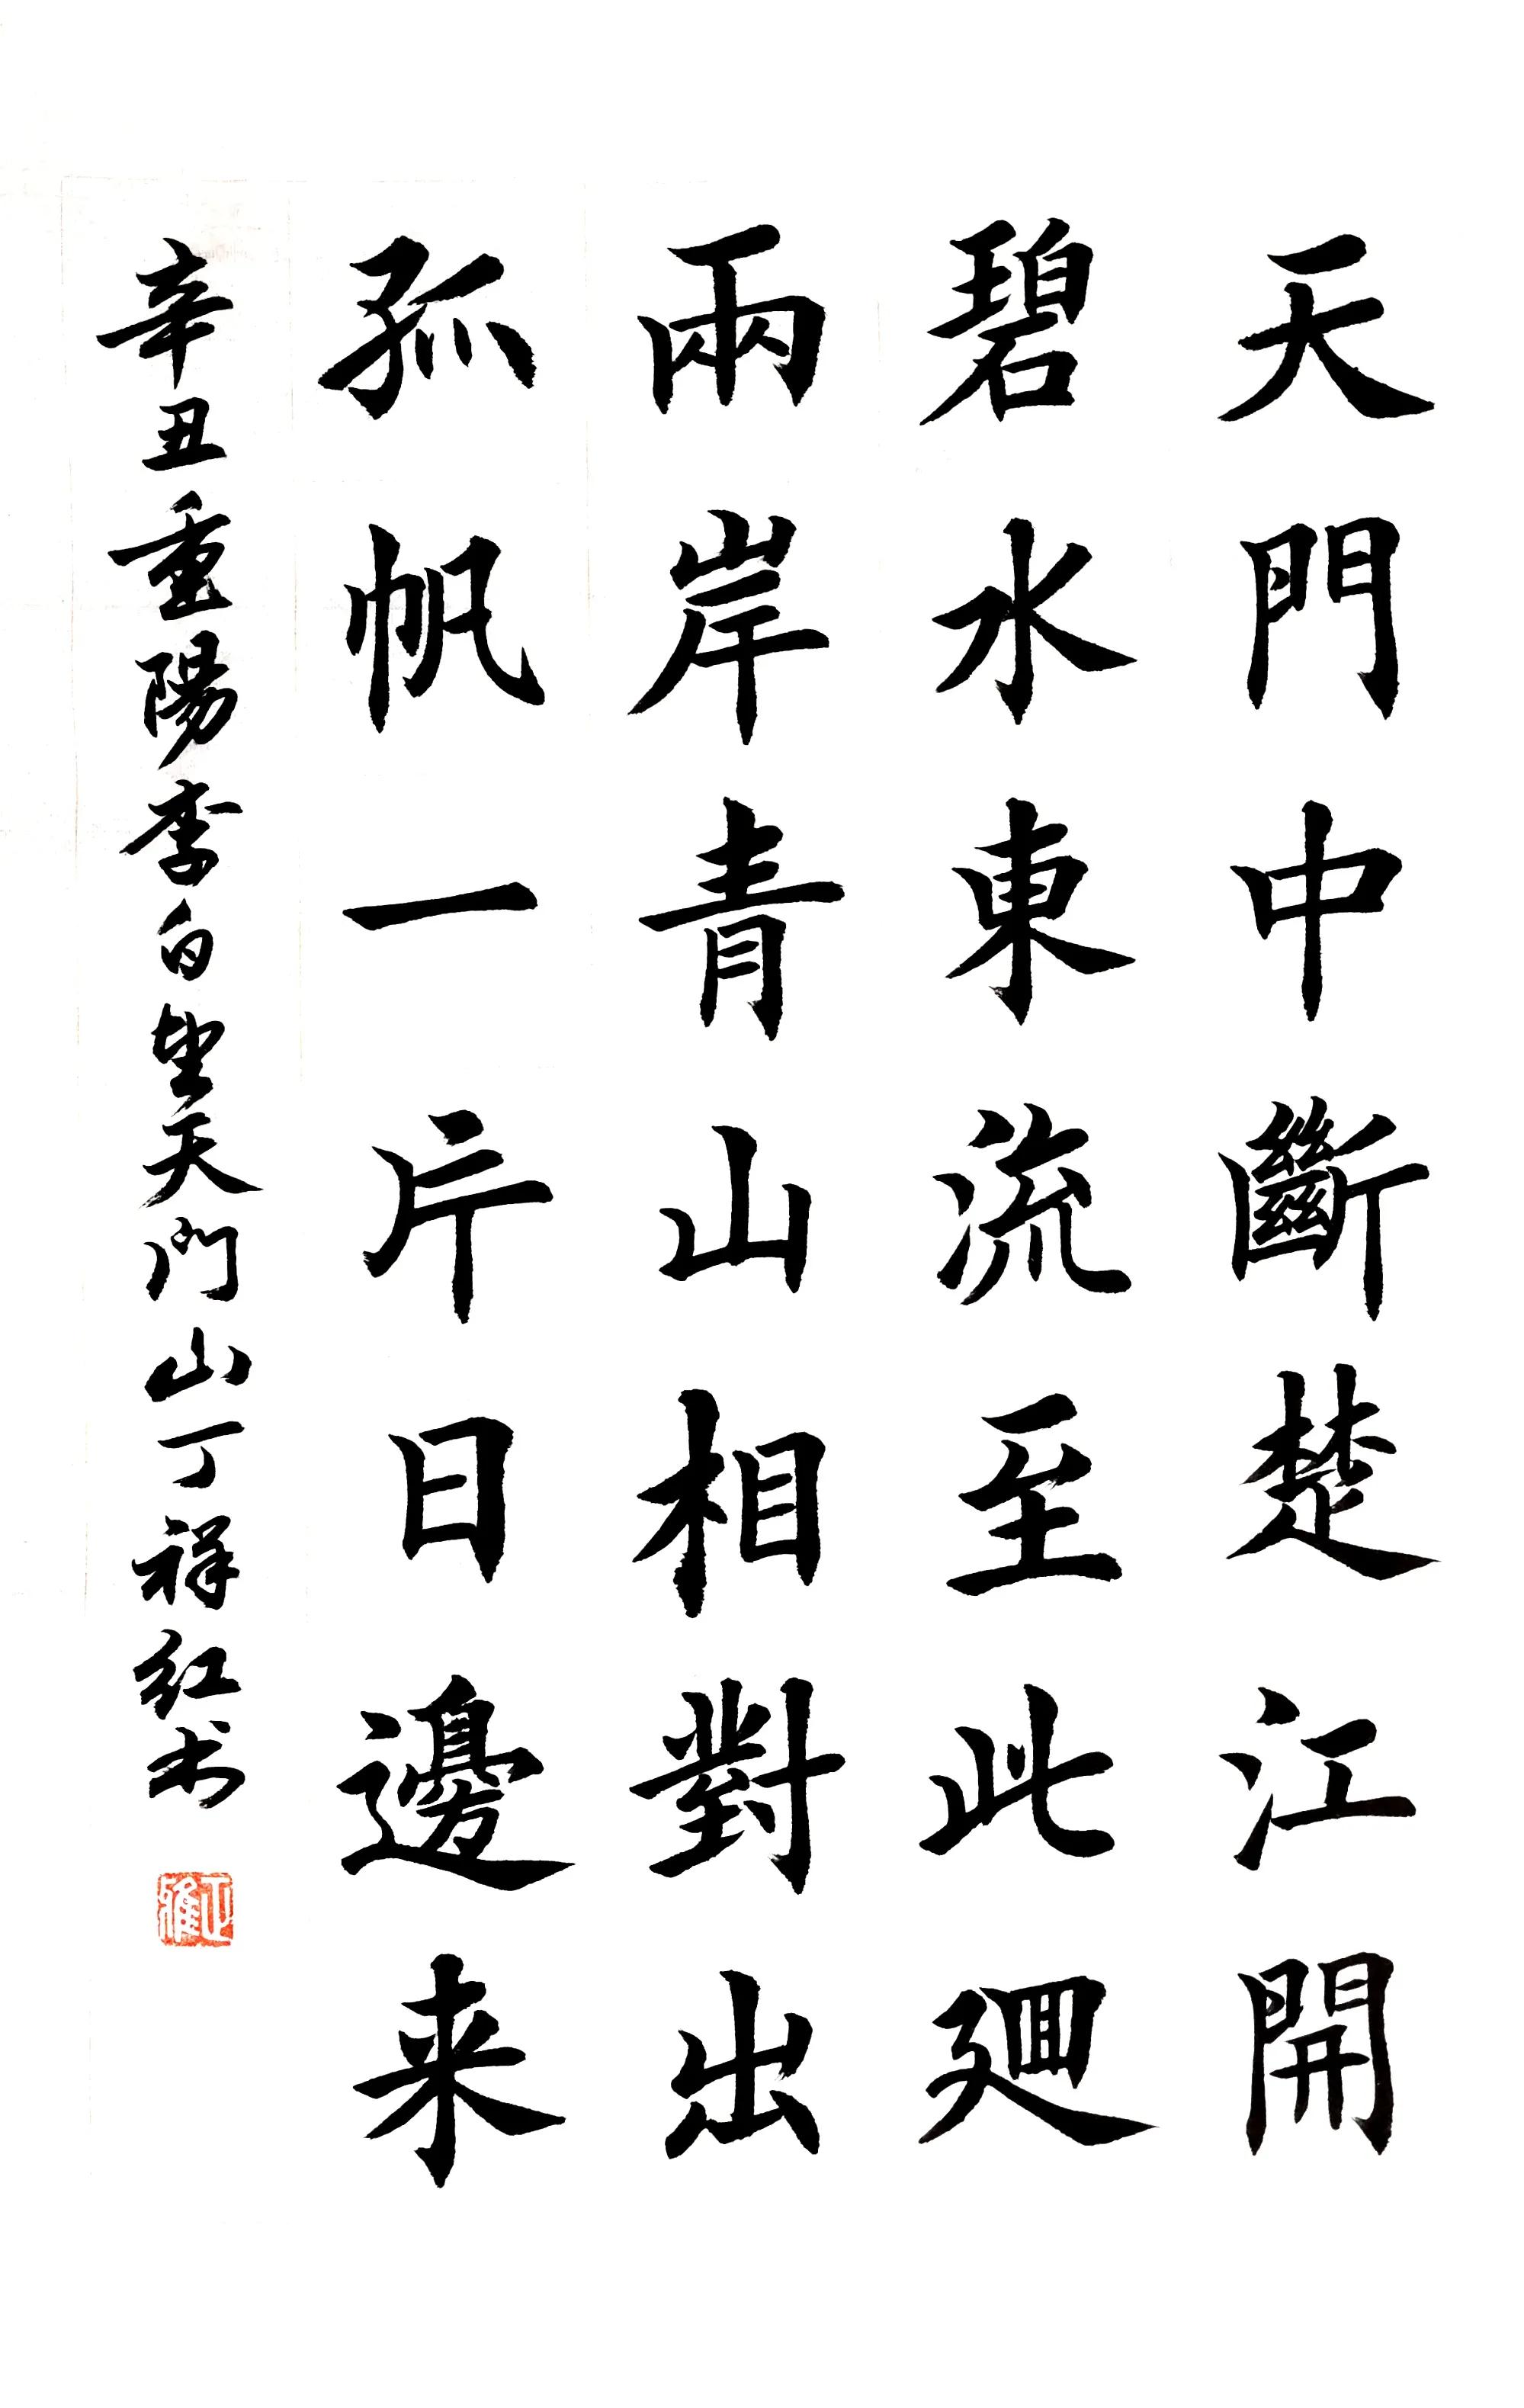 天門中斷楚江開
碧水東流至此廻
兩岸青山相對出
孤帆一片日邊来
辛丑重陽李白望天門山丁祥红书